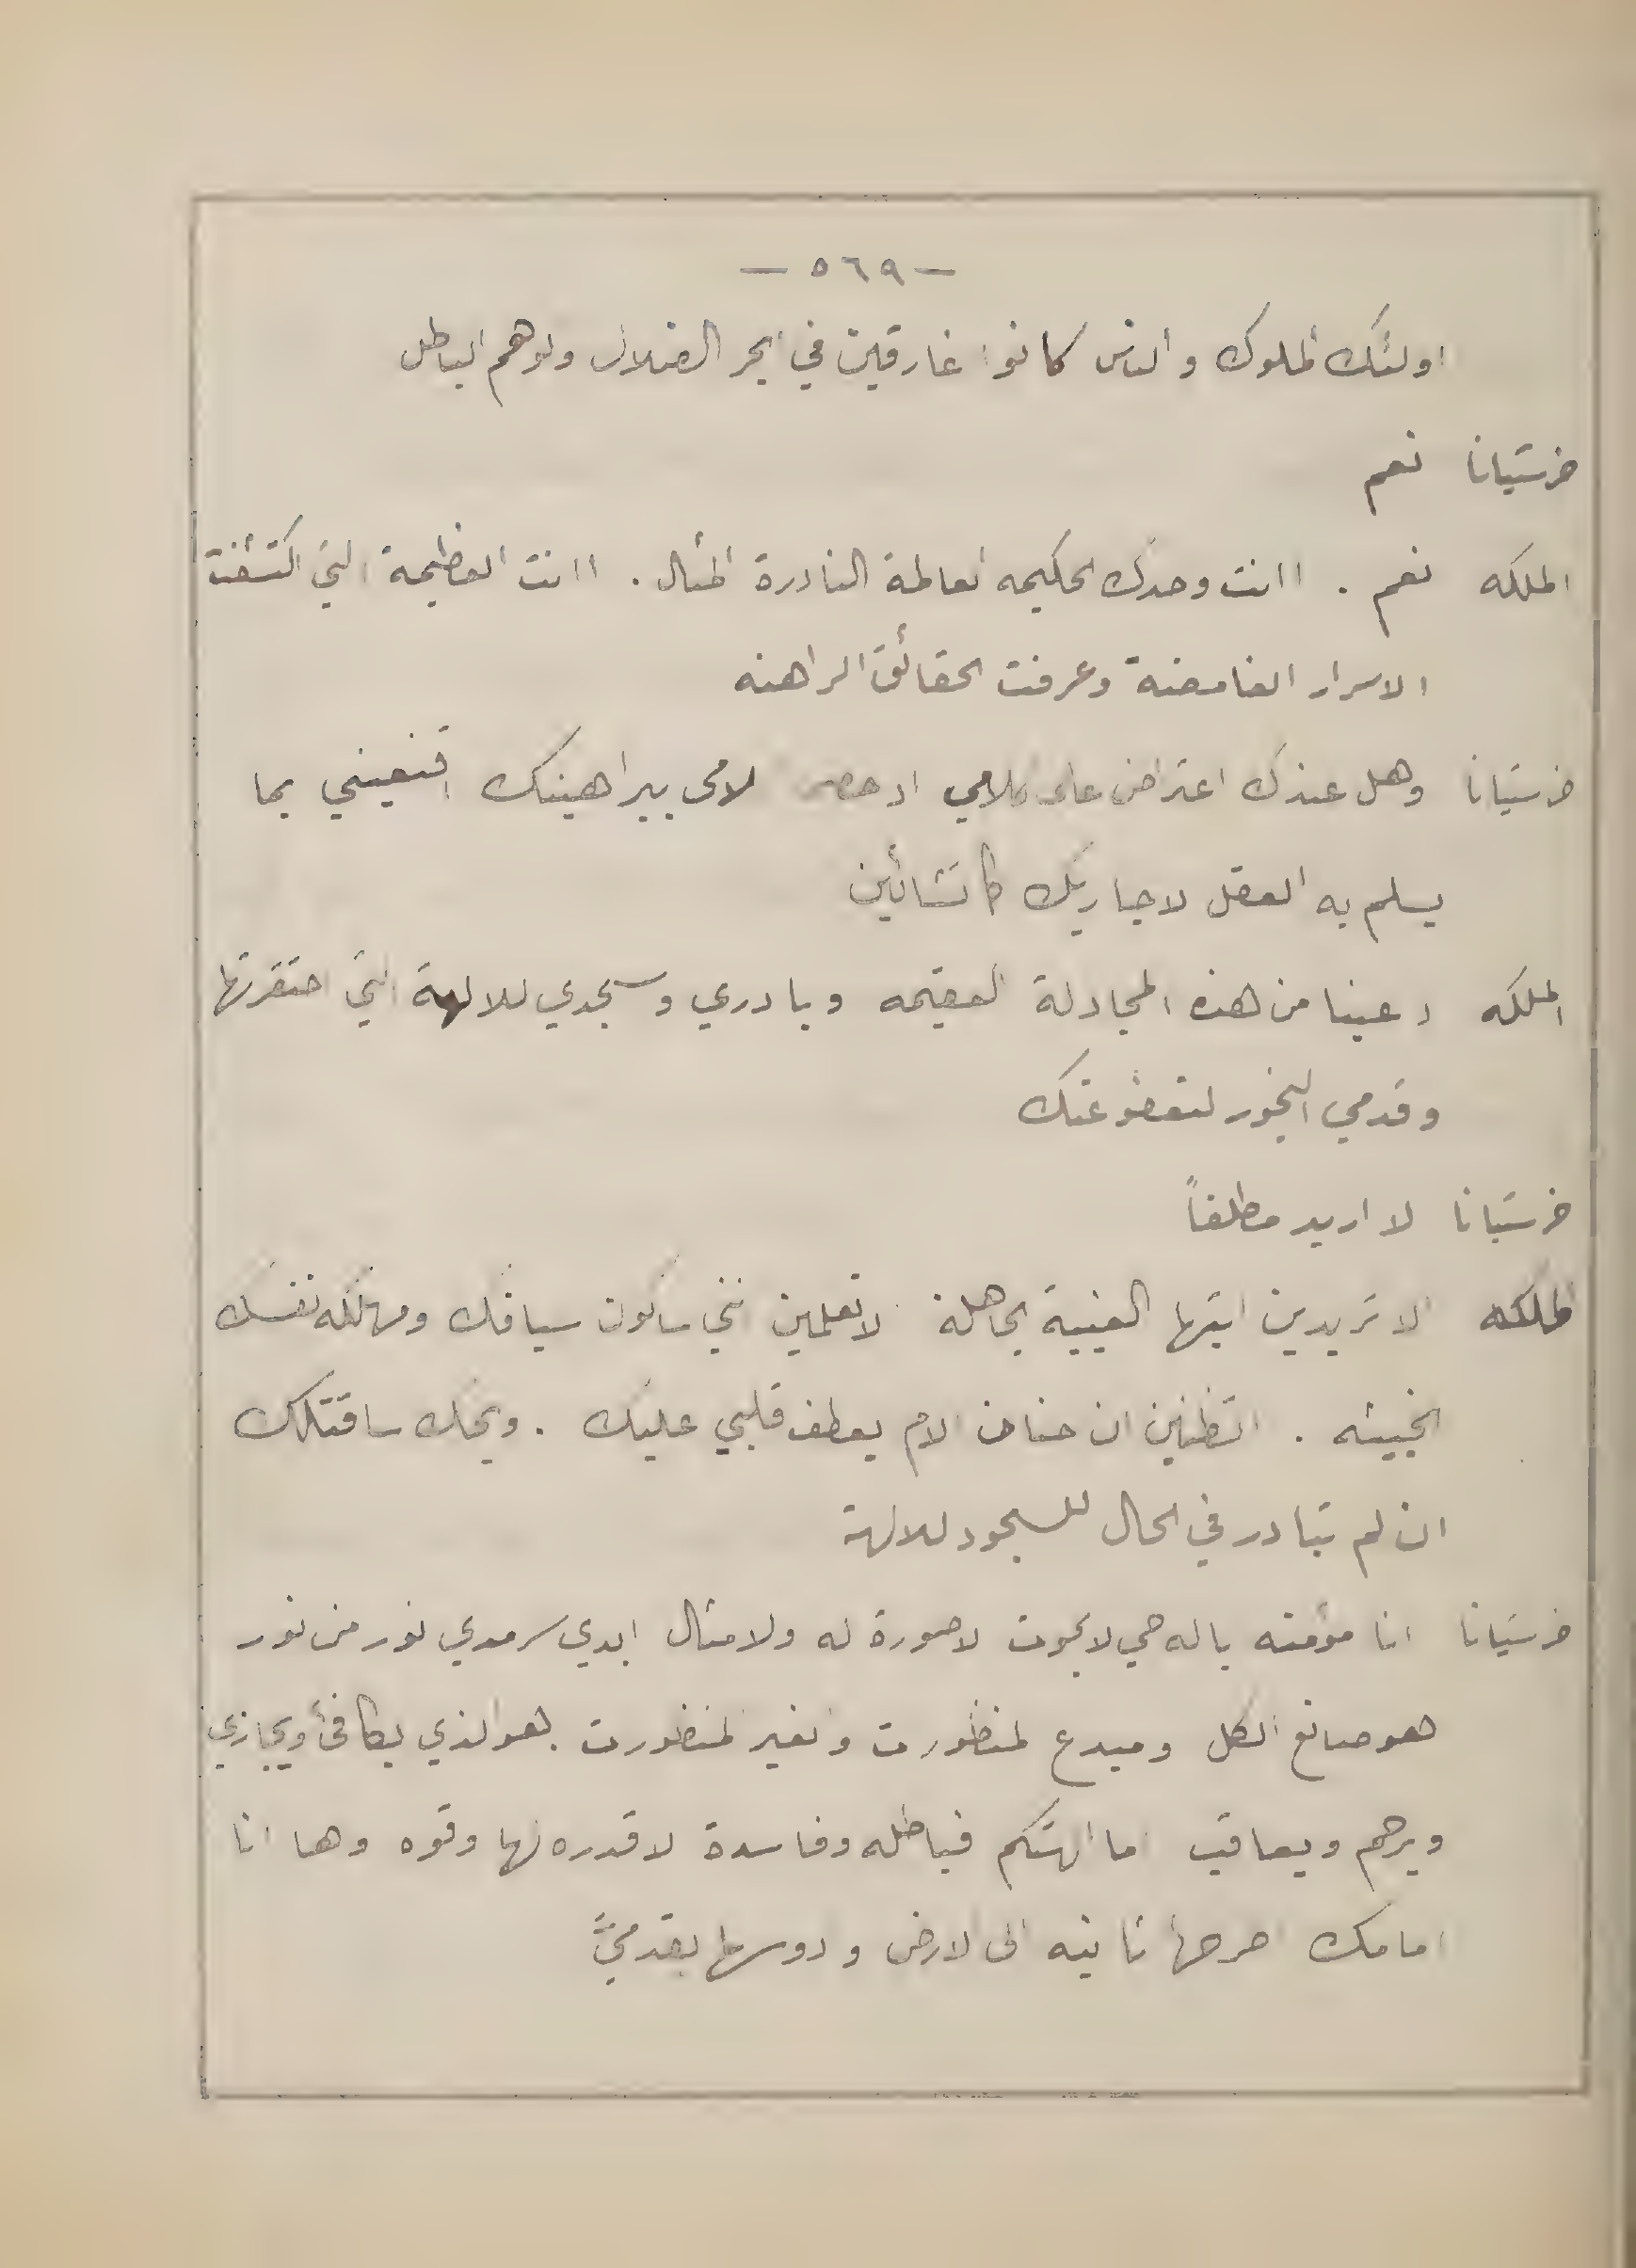 — ٥٦٩ —
اولئك الملوك والناس كانوا غارقين في ابحر الضلال والوهم الباطل
خرستيانا نعم
الملكه نعم . اانت وحدك الحكيمه العالمة النادرة المثال . اانت العظيمة التي اكتشفت
الاسرار الغامضة وعرفت الحقائق الراهنه
خرستيانا وهل عندك اعتراض على كلامي ببراهينك اقنعيني بما
يسلم به العقل لاجاريك كما تشائين
الملكه دعينا من هذه المجادلة العقيمه وبادري واسجدي للالهة التي احتقرتها
وقدمي البخور لتعفو عنك
خرستيانا لا اريد مطلقاً
الملكه الا تريدين ايتها الغبية الجاهلة الا تعلمين انني ساكون سيافك ومهلكه نفسك
الخبيثه . اتظنين ان حنان الام يعطف قلبي عليك . ويحك ساقتلك
ان لم تبادر في الحال للسجود للالهة
خرستيانا انا مؤمنه باله حي لا يموت لا صورة له ولا مثال ابدي سرمدي نور من نور
هو صانع الكل ومبدع المنظورت والغير المنظورت . هو الذي يكافئ ويجازي
ويرحم ويعاقب اما الهتكم فباطله وفاسدة لا قدره لها وقوه وها انا
امامك اطرحها ثانيه الى الارض وادوسها بقدميَّ